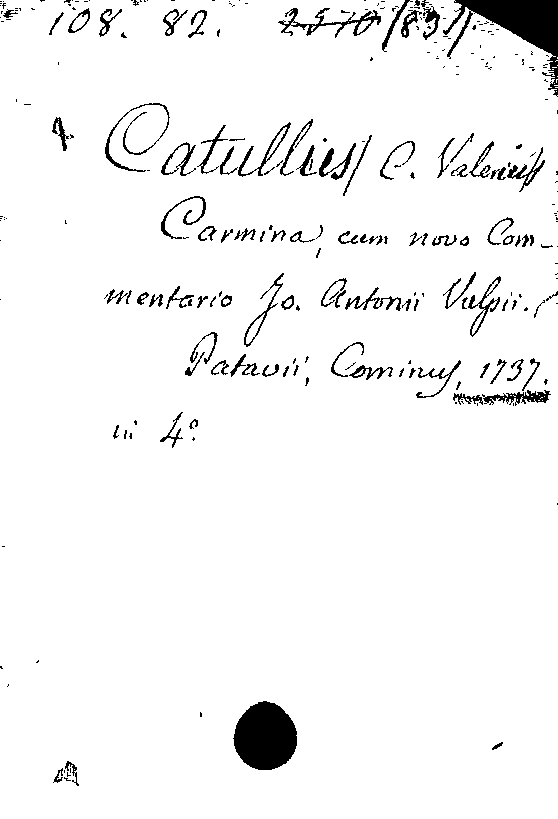 108. 82. 2570 (831).
Catullus/ C. Valerius/
Carmina, cum novo Com-
mentario Jo. Antonii Vulpii./
Patavii, Cominus, 1737.
in 4º